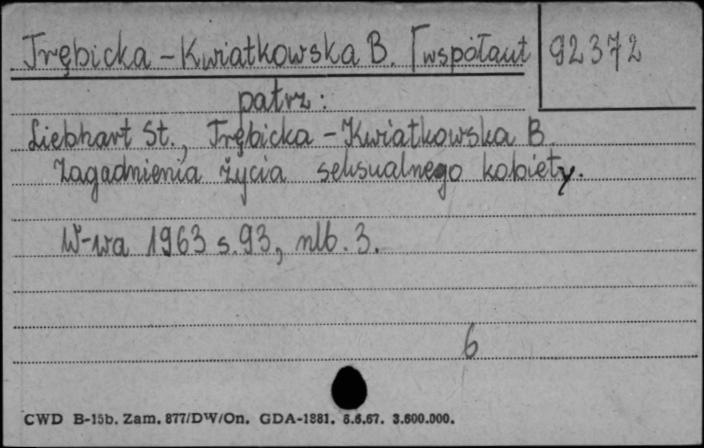 Trębicka - Kwiatkowska B. [współaut
92372
patrz:
Liebhart St., Trębicka - Kwiatkowska B.
Zagadnienia życia seksualnego kobiety.
W-wa 1963 s. 93, nlb. 3.
6
CWD B-15b. Zam. 877/DW/On. GDA-1881. 5.6.67. 3.600.000.